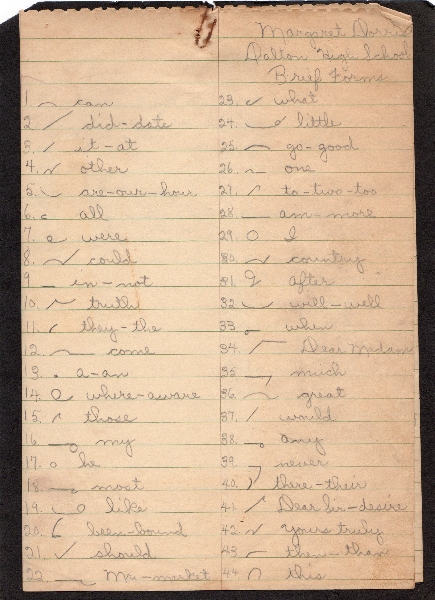 Margaret Dorris
Dalton High School
Brief Forms
1. can
2. did-date
3. it-at
4. other
5. are-our-hour
6. all
7. were
8. could
9. in-not
10. truth
11. they-the
12. come
13. a-an
14. where-aware
15. those
16. my
17. he
18. most
19. like
20. been-bound
21. should
22. Mr.-market
23. what
24. little
25. go-good
26. one
27. to-two-too
28. am-more
29. I
30. country
31. after
32. will-well
33. when
34. Dear Madam
35. much
36. great
37. would
38. any
39. never
40. there-their
41. Dear Sir-desire
42. Yours truly
43. then-than
44. this